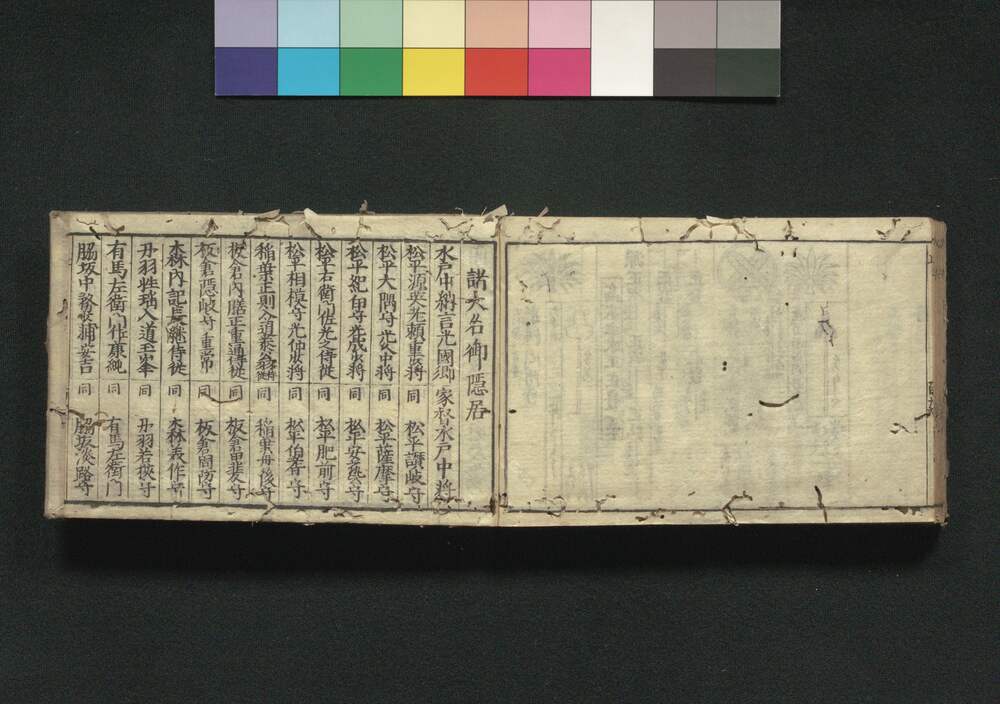 諸大名御隠居
水戸中納言光國卿 家督水戸中将
松平源英光頼重少将 同 松平讃岐守
松平大隅守光久中将 同 松平薩摩守
松平紀伊守光晟少将 同 松平安藝守
松平右衛門佐光之侍従 同 松平肥前守
松平相模守光仲少将 同 松平伯耆守
稲葉正則入道泰翁侍従 同 稲葉丹後守
板倉内膳正重通侍従 同 板倉甲斐守
板倉隠岐守重常 同 板倉周防守
森内記長継侍従 同 森美作守
丹羽性瑞入道玉峯 同 丹羽若狭守
有馬左衛門佐康純 同 有馬左衛門
脇坂中務少輔安吉 同 脇坂淡路守